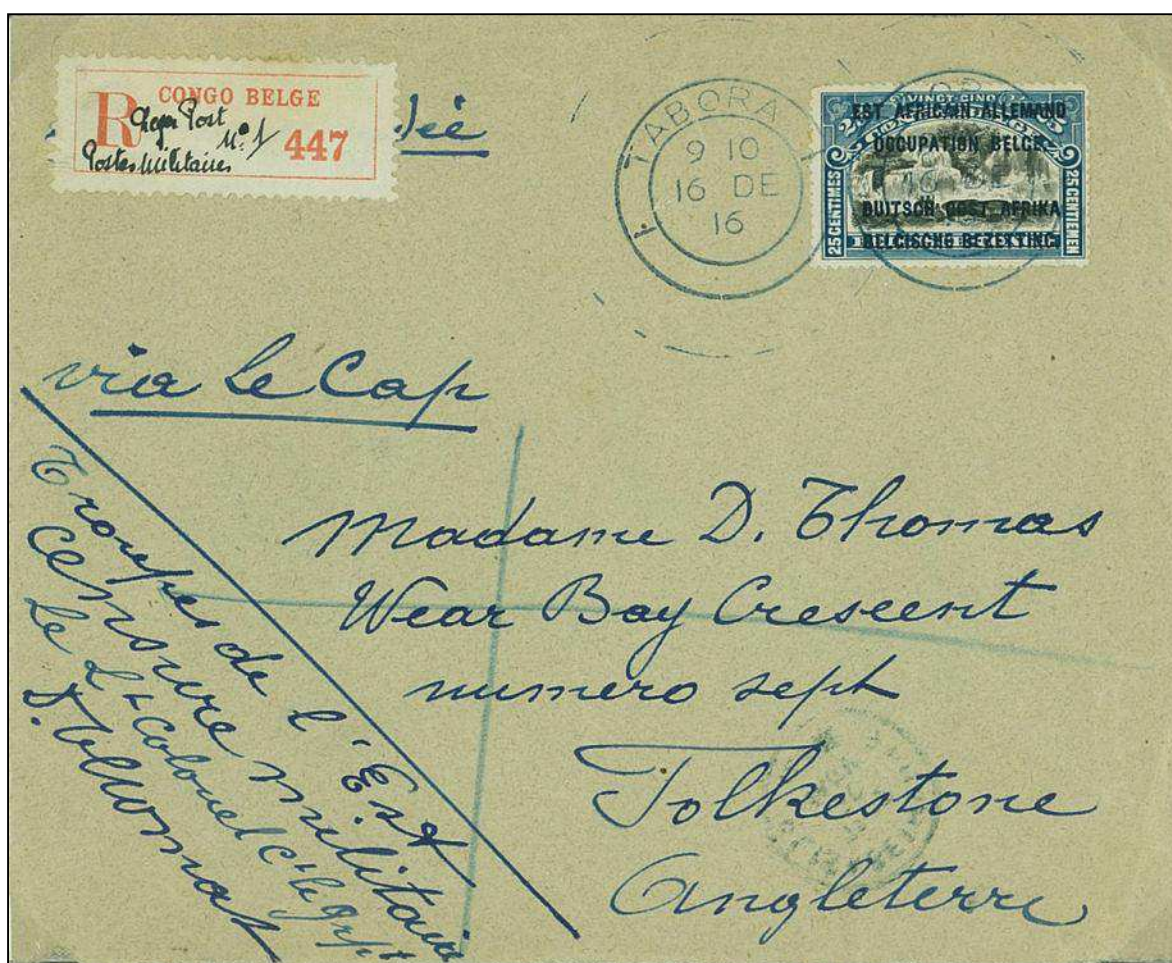 R CONGO BELGE
Agen Post
N° 1
Postes Militaires
447
TABORA
9 10
16 DE
16
VINGT-CINQ
EST AFRICAIN ALLEMAND
OCCUPATION BELGE
DUITSCH OOST AFRIKA
BELGISCHE BEZETTING
25 CENTIMES
25 CENTIEMEN
via le Cap
Troupes de l'Est
Censure militaire
Le Lt Colonel Ct le Grpt
Thomas
Madame D. Thomas
Wear Bay Crescent
numero sept
Folkestone
Angleterre